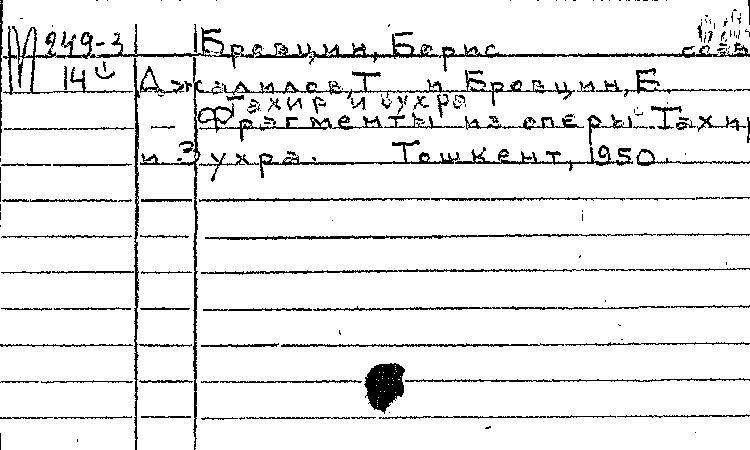 М 249-3 Бровцин, Борис
14 Джалилов, Т. и Бровцин, Б.
Тахир и Зухра
Фрагменты из оперы "Тахир
и Зухра. Тошкент, 1950.